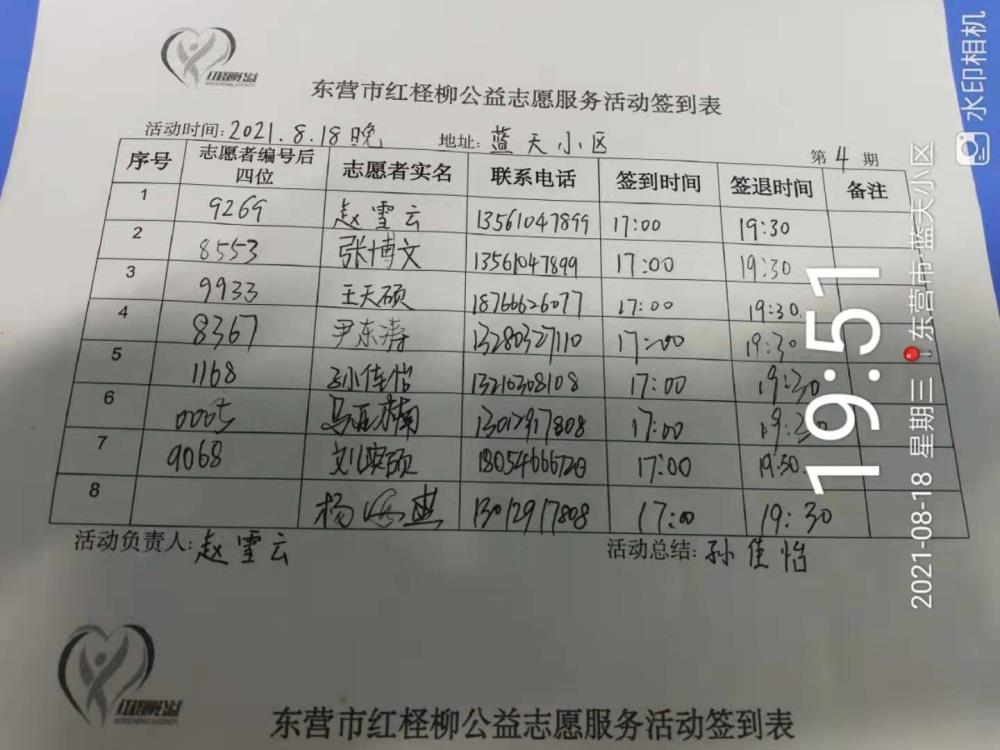 红柽柳公益
东营市红柽柳公益志愿服务活动签到表
活动时间:2021.8.18晚 地址:蓝天小区 第4期
序号 志愿者编号后四位 志愿者实名 联系电话 签到时间 签退时间 备注
1 9269 赵雪云 13561047899 17:00 19:30
2 8553 张博文 13561047899 17:00 19:30
3 9933 王天硕 18766626077 17:00 19:30
4 8367 尹东涛 13280327110 17:00 19:30
5 1168 孙佳怡 13210308108 17:00 19:30
6 0005 马亚楠 13012917808 17:00 19:30
7 9068 刘 18054666720 17:00 19:30
8 杨 13012917808 17:00 19:30
活动负责人:赵雪云 活动总结:孙佳怡
红柽柳公益
东营市红柽柳公益志愿服务活动签到表
19:51
2021-08-18 星期三 东营市·蓝天小区
水印相机